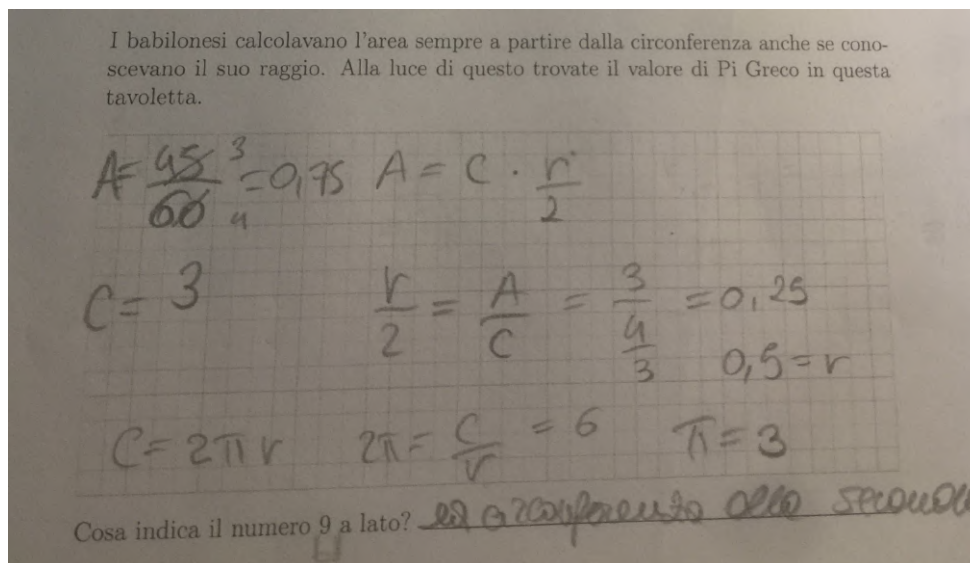 I babilonesi calcolavano l'area sempre a partire dalla circonferenza anche se cono-
scevano il suo raggio. Alla luce di questo trovate il valore di Pi Greco in questa
tavoletta.
A = 45/60 3/4 = 0,75 A = C · r/2
C = 3 r/2 = A/C = 3/4/3 = 0,25
0,5 = r
C = 2πr 2π = C/r = 6 π = 3
Cosa indica il numero 9 a lato? la circonferenza alla seconda